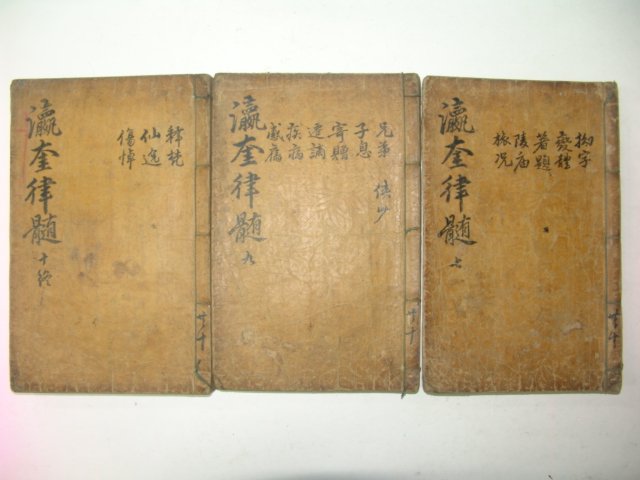 拗字
變體
著題
陵廟
旅況
瀛奎律髓
七
共十
兄弟
子息
寄贈
遷謫
疾病
感舊
俠少
瀛奎律髓
九
共十
釋梵
仙逸
傷悼
瀛奎律髓
十終
共十